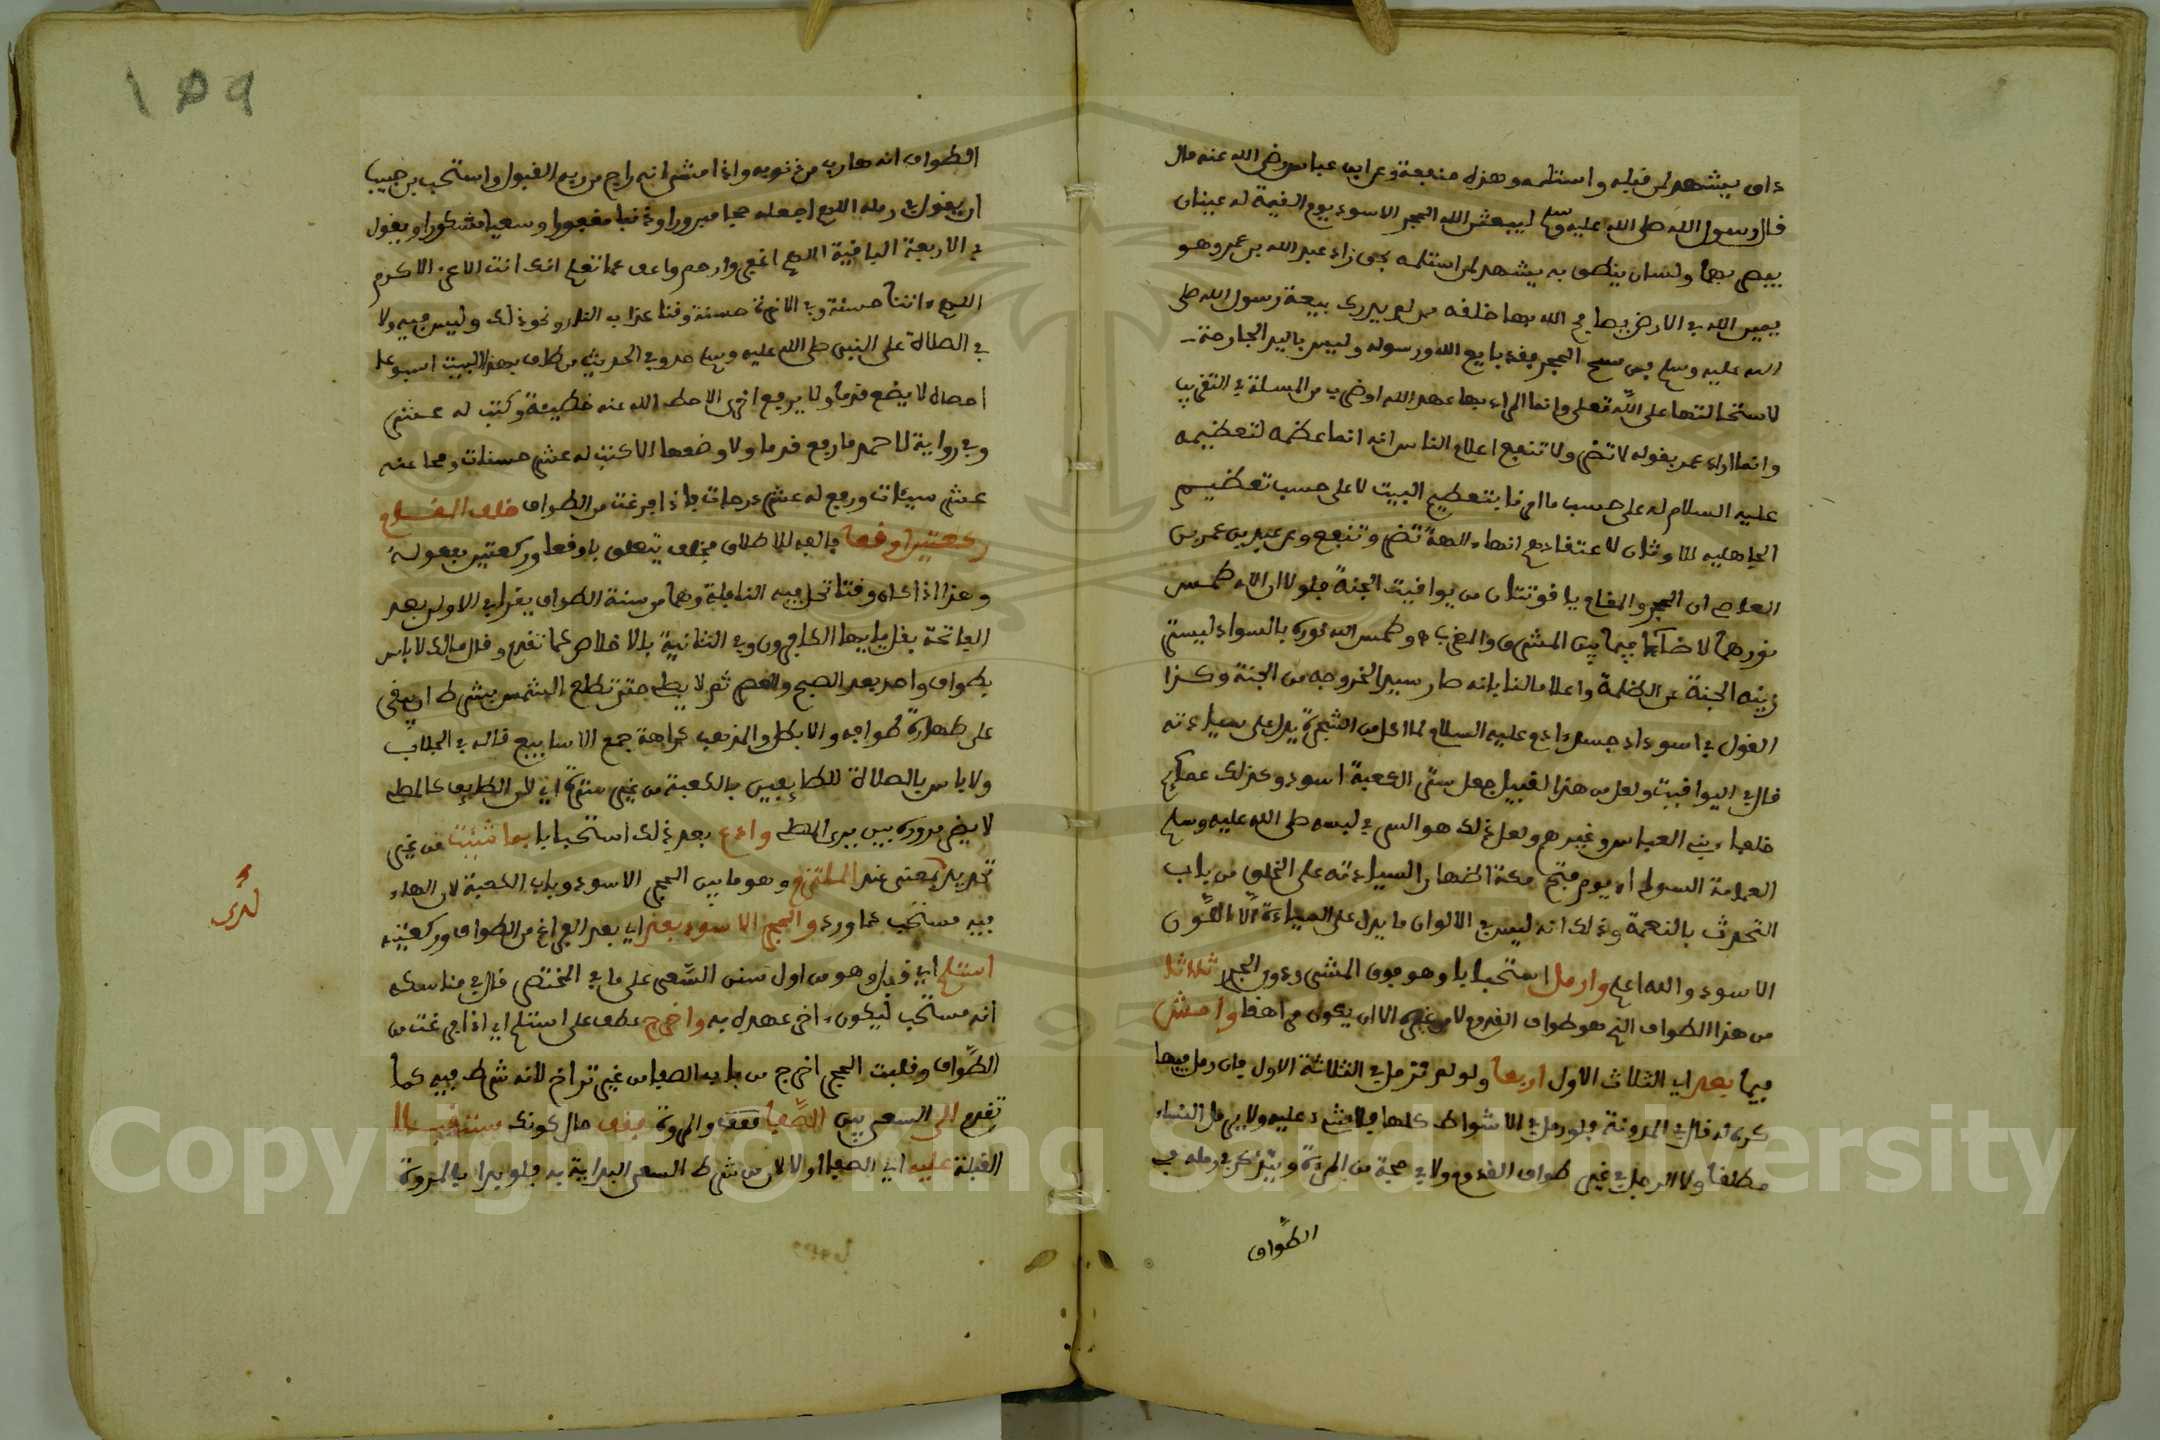 داى يشهد لمن قبله واستلمه وهذه منفعة وعن ابن عباس رضى الله عنه قال
قال رسول الله صلى الله عليه وسلم ليبعثن الله الحجر الاسود يوم القيمة له عينان
يبصر بهما ولسان ينطق به يشهد لمن استلمه بحق زاد عبد الله بن عمرو وهو
يمين الله في الارض يصافح الله بها خلفه من لم يدرك بيعة رسول الله صلى
الله عليه وسلم فمن مسح الحجر فقد بايع الله ورسوله وليس باليد الجارحة
لاستحالتها على الله تعلى وانما المراد بها عهد الله اوضرب من المسلة في التقريب
وانما اراد عمر بقوله لا تضر ولا تنفع اعلام الناس انه انما عظمه لتعظيمه
عليه السلام له على حسب ما امرنا بتعظيم البيت لا على حسب تعظيم
الجاهلية للاوثان لاعتقادهم انها الهة تضر وتنفع وعن عبد بن عمر بن
العاصى ان الحجر والمقام ياقوتتان من يواقيت الجنة فلولا ان الله طمس
نورهما لاضا ما بين المشرق والمغرب وطمس الله نوره بالسواد ليستر
زينة الجنة عن الظلمة واعلاما لنا بانه صار سيدا لخروجه من الجنة وكذا
القول في اسوداد جسد ادم عليه السلام لما اكل من الشجرة يدل على سيادته
قال في اليواقيت ولعل من هذا القبيل جعل ستر الكعبة اسود وكذلك عمائم
خلفاء بني العباس وغيرهم ولعل ذلك هو السر في لبسه صلى الله عليه وسلم
العمامة السوداء يوم فتح مكة اظهارا لسيادته على الخلق من باب
التحدث بالنعمة وذلك ان ليس في الالوان ما يدل على السيادة الا اللون
الاسود والله اعلم وارمل استحبابا وهو فوق المشى ودون الجرى ثلاثا
من هذا الطواف الذى هو طواف القدوم لا من غيره الا ان يكون مراهقا وامش
فيما بعد اي الثلاث الاول اربعا ولو لم ترمل في الثلاثة الاول فان رمل فيها
كره له قال في المدونة ولو رمل في الاشواط كلها فلا شىء عليه ولا يرمل النساء
مطلقا ولا الرجل في غير طواف القدوم ولا في حجة من المرية ويتذكر في رمله في
الطواف
١٥٩
الطواف انه هارب من ذنوبه واذا مشى انه راج من ربه القبول واستحب بن حبيب
ان يقول في رمله اللهم اجعله حجا مبرورا وذنبا مغفورا وسعيا مشكورا ويقول
في الاربعة الباقية اللهم اغفر وارحم واعف عما تعلم انك انت الاعز الاكرم
اللهم ءاتنا حسنة وفي الاخرة حسنة وقنا عذاب النار ونحو ذلك وليس فيه ولا
في الصلاة على النبي صلى الله عليه وسلم حد وفي الحديث من طاف بهذا البيت اسبوعا
احصاه لا يضع قدما ولا يرفع اخرى الا حط الله عنه خطيئة وكتب له عشر
وفي رواية لاحمد ما رفع قدما ولا وضعها الا كتب له عشر حسنات ومحا عنه
عشر سيئات ورفع له عشر درجات فاذا فرغت من الطواف خلف المقام
ركعتين اوقعا فالفه للاطلاق فخلف يتعلق باوقعا وركعتين مفعوله
وهذا اذا كان وقتا تحل فيه النافلة وهما من سنة الطواف يقرا في الاولى بعد
الفاتحة بقل يا ايها الكافرون وفي الثانية بالاخلاص كما تقدم وقال مالك لا باس
بطواف واحد بعد الصبح والعصر ثم لا يصلى حتى تطلع الشمس بشرط ان يبقى
على طهارة طوافه والا بطل والمذهب كراهة جمع الاسابيع قاله في الجلاب
ولا باس بالصلاة للطائفين بالكعبة من غير سترة اي لان الطائف كالمصلى
لا يضر مروره بين يدى المصلى وادع بعد ذلك استحبابا بما شئت من غير
تحديد بمعنى عند الملتزم وهو ما بين الحجر الاسود وباب الكعبة لان الدعاء
فيه مستحب كما ورد والحجر الاسود بعد اي بعد الفراغ من الطواف وركعتيه
استلم اي قبل وهو من اول سنن السعى على ما في المختصر قال في مناسكه
انه مستحب ليكون ءاخر عهده به واخرج عطف على استلم اي اذا فرغت من
الطواف وقبلت الحجر اخرج من باب الصفا من غير تراخ لانه شرط فيه كما
تقدم الى السعى بين الصفا فقف والمروة فقف حال كونك مستقبلا
القبلة عليه اي الصفا اولا لان من شرط السعى البداية به فلو بدا بالمروة
لدى